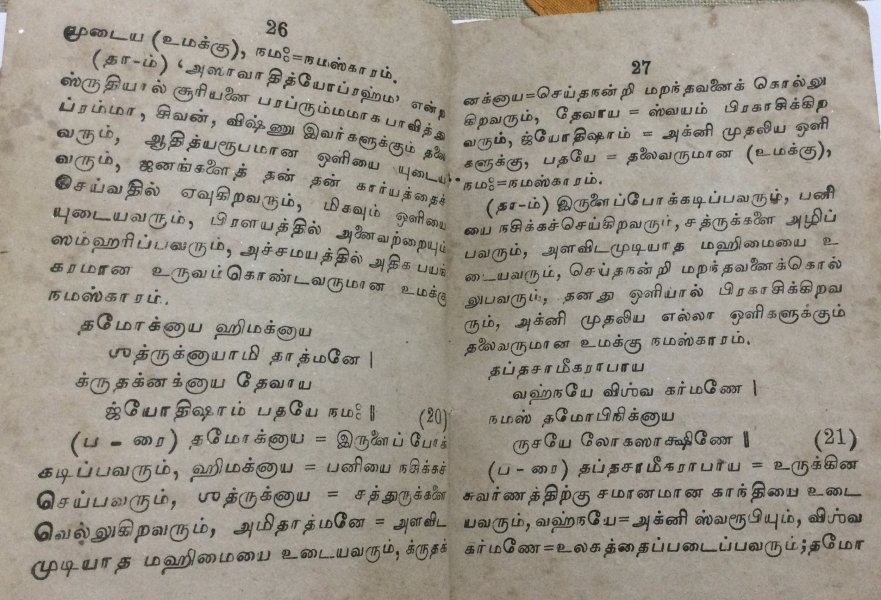 26
முடைய (உமக்கு), நமஃ=நமஸ்காரம்.
(தா-ம்) ‘அஸாவாதித்யோப்ரஹ்ம’ என்ற
ஸ்ருதியால் சூரியனை பரப்ரும்மமாக பாவித்து
ப்ரம்மா, சிவன், விஷ்ணு இவர்களுக்கும் தலை
வரும், ஆதித்யரூபமான ஒளியை யுடைய
வரும், ஜனங்களைத் தன் தன் கார்யத்தைச்
செய்வதில் ஏவுகிறவரும், மிகவும் ஒளியை
யுடையவரும், பிரளயத்தில் அனைவற்றையும்
ஸம்ஹரிப்பவரும், அச்சமயத்தில் அதிக பயங்
கரமான உருவம்கொண்டவருமான உமக்கு
நமஸ்காரம்.
தமோக்னாய ஹிமக்னாய
ஶத்ருக்னாயாமி தாத்மனே |
க்ருதக்னக்னாய தேவாய
ஜ்யோதிஷாம் பதயே நமஃ ‖ (20)
(ப - ரை) தமோக்னாய = இருளைப் போக்
கடிப்பவரும், ஹிமக்னாய = பனியை நசிக்கச்
செய்பவரும், ஶத்ருக்னாய = சத்துருக்களை
வெல்லுகிறவரும், அமிதாத்மனே = அளவிட
முடியாத மஹிமையை உடையவரும், க்ருதக்
27
னக்னாய=செய்தநன்றி மறந்தவனைக் கொல்லு
கிறவரும், தேவாய = ஸ்வயம் பிரகாசிக்கிற
வரும், ஜ்யோதிஷாம் = அக்னி முதலிய ஒளி
களுக்கு, பதயே = தலைவருமான (உமக்கு),
நமஃ=நமஸ்காரம்.
(தா-ம்) இருளைப்போக்கடிப்பவரும், பனி
யை நசிக்கச்செய்கிறவரும், சத்ருக்களை அழிப்
பவரும், அளவிடமுடியாத மஹிமையை உ
டையவரும், செய்தநன்றி மறந்தவனைக்கொல்
லுபவரும், தனது ஒளியால் பிரகாசிக்கிறவ
ரும், அக்னி முதலிய எல்லா ஒளிகளுக்கும்
தலைவருமான உமக்கு நமஸ்காரம்.
தப்தசாமீகராபாய
வஹ்நயே விஶ்வ கர்மணே |
நமஸ் தமோபிநிக்னாய
ருசயே லோகஸாக்ஷிணே ‖ (21)
(ப - ரை) தப்தசாமீகராபாய = உருக்கின
சுவர்ணத்திற்கு சமானமான காந்தியை உடை
யவரும், வஹ்நயே=அக்னி ஸ்வரூபியும், விஶ்வ
கர்மணே=உலகத்தைப்படைப்பவரும்;தமோ